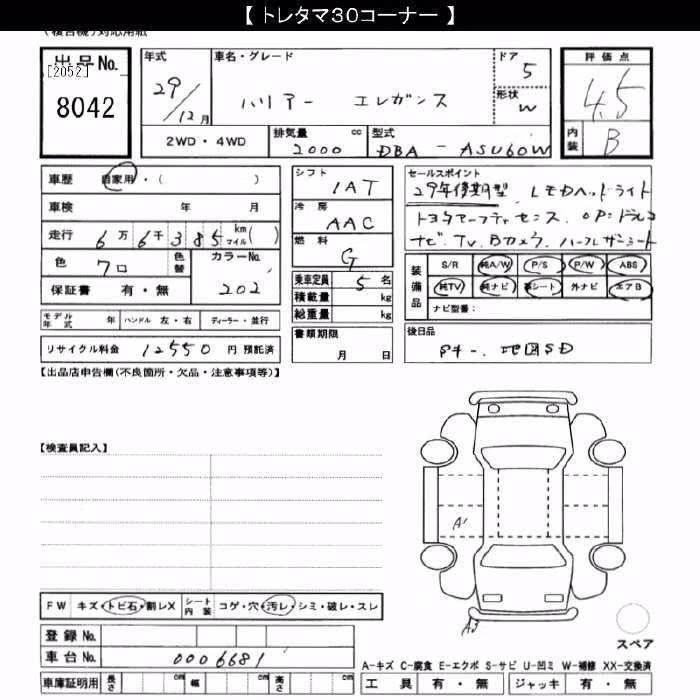 【 トレタマ３０コーナー 】
(複合機)対応用紙
出品No.
[2052]
8042
年式 29/12月
車名・グレード
ハリアー エレガンス
ドア 5
形状 W
2WD・4WD
排気量 2000 cc
型式 DBA - ASU60W
評価点 4.5
内装 B
車歴 自家用・( )
車検 年 月
走行 6万 6千 385 km マイル( )
色 クロ 色替 カラーNo. 202
保証書 有・無
シフト 1AT
冷房 AAC
燃料 G
乗車定員 5名
積載量 kg
総重量 kg
書類期限 月 日
セールスポイント
29年後期型 LEDヘッドライト
トヨタセーフティセンス OP:ドラレコ
ナビ TV Bカメラ ハーフレザーシート
装備品 S/R 純A/W P/S P/W ABS
純TV 純ナビ 革シート 外ナビ エアB
ナビ型番:
モデル年式 年 ハンドル 左・右 ディーラー・並行
リサイクル料金 12550 円 預託済
後日品
地図SD
【出品店申告欄(不良箇所・欠品・注意事項等)】
【検査員記入】
A1
A3
FW キズ・トビ石・割レX シート内装 コゲ・穴・汚レ・シミ・破レ・スレ
スペア
登録No.
車台No. 0006681
A-キズ C-腐食 E-エクボ S-サビ U-凹ミ W-補修 XX-交換済
車庫証明用 長さ cm 幅 cm 高さ cm
工具 有・無 ジャッキ 有・無